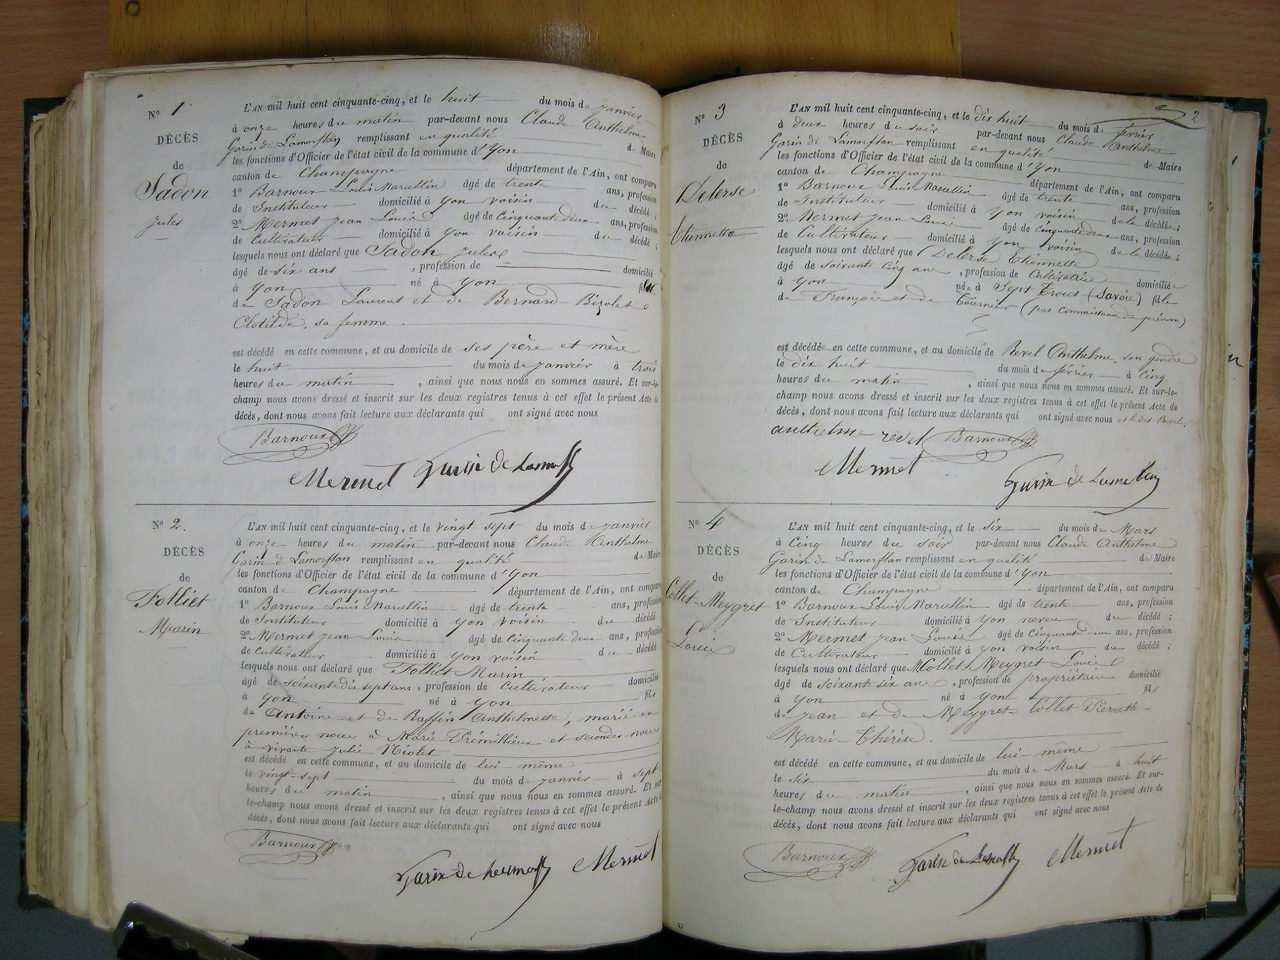 N° 1
DÉCÈS
de
Sadon
Jules
L'AN mil huit cent cinquante-cinq, et le huit du mois de janvier
à onze heures du matin par-devant nous Claude Anthelme
Garin de Lamorflan remplissant en qualité de Maire
les fonctions d'Officier de l'état civil de la commune d'Yon
canton de Champagne département de l'Ain, ont comparu
1° Barnoux Louis Marcellin âgé de trente ans, profession
de Instituteur domicilié à Yon voisin du décédé ;
2° Mermet Jean Louis âgé de cinquante deux ans, profession
de Cultivateur domicilié à Yon voisin du décédé ;
lesquels nous ont déclaré que Sadon Jules
âgé de six ans , profession de domicilié
à Yon né à Yon fils
de Sadon Laurent et de Bernard-Bizolet
Clotilde, sa femme
est décédé en cette commune, et au domicile de ses père et mère
le huit du mois de janvier à trois
heures du matin , ainsi que nous nous en sommes assuré. Et sur-le-
champ nous avons dressé et inscrit sur les deux registres tenus à cet effet le présent Acte de
décès, dont nous avons fait lecture aux déclarants qui ont signé avec nous
Barnoux
Mermet Garin de Lamorflan
N° 2.
DÉCÈS
de
Folliet
Marin
L'AN mil huit cent cinquante-cinq, et le vingt sept du mois de janvier
à onze heures du matin par-devant nous Claude Anthelme
Garin de Lamorflan remplissant en qualité de Maire
les fonctions d'Officier de l'état civil de la commune d'Yon
canton de Champagne département de l'Ain, ont comparu
1° Barnoux Louis Marcellin âgé de trente ans, profession
de Instituteur domicilié à Yon voisin du décédé
2° Mermet Jean Louis âgé de cinquante deux ans, profession
de Cultivateur domicilié à Yon voisin du décédé
lesquels nous ont déclaré que Folliet Marin
âgé de soixante dix sept ans, profession de Cultivateur domicilié
à Yon né à Yon fils
de Antoine et de Baffin Anthelmette, marié en
premières noces à Marie Prémillieu et secondes noces
à vivante Julie Niolet
est décédé en cette commune, et au domicile de lui-même
le vingt-sept du mois de janvier à sept
heures du matin , ainsi que nous nous en sommes assuré. Et sur-
le-champ nous avons dressé et inscrit sur les deux registres tenus à cet effet le présent Acte de
décès, dont nous avons fait lecture aux déclarants qui ont signé avec nous
Barnoux
Garin de Lamorflan Mermet
2
N° 3
DÉCÈS
de
Delerse
Thiennette
L'AN mil huit cent cinquante-cinq, et le dix huit du mois de février
à deux heures du soir par-devant nous Claude Anthelme
Garin de Lamorflan remplissant en qualité de Maire
les fonctions d'Officier de l'état civil de la commune d'Yon
canton de Champagne département de l'Ain, ont comparu
1° Barnoux Louis Marcellin âgé de trente ans, profession
de Instituteur domicilié à Yon voisin de la décédée ;
2° Mermet Jean Louis âgé de cinquante deux ans, profession
de Cultivateur domicilié à Yon voisin de la décédée ;
lesquels nous ont déclaré que Delerse Thiennette
âgé de soixante cinq ans , profession de Cultivatrice domiciliée
à Yon née à Sept (Savoie) fille
de François et de Tournier (pas connaissance de prénom)
est décédée en cette commune, et au domicile de Revel Anthelme, son gendre
le dix huit du mois de février à cinq
heures du matin , ainsi que nous nous en sommes assuré. Et sur-le-
champ nous avons dressé et inscrit sur les deux registres tenus à cet effet le présent Acte de
décès, dont nous avons fait lecture aux déclarants qui ont signé avec nous
anthelme revel Barnoux
Mermet
Garin de Lamorflan
N° 4
DÉCÈS
de
Collet-Meygret
Louis
L'AN mil huit cent cinquante-cinq, et le six du mois de Mars
à Cinq heures du soir par-devant nous Claude Anthelme
Garin de Lamorflan remplissant en qualité de Maire
les fonctions d'Officier de l'état civil de la commune d'Yon
canton de Champagne département de l'Ain, ont comparu
1° Barnoux Louis Marcellin âgé de trente ans, profession
de Instituteur domicilié à Yon du décédé ;
2° Mermet Jean Louis âgé de Cinquante deux ans, profession
de Cultivateur domicilié à Yon voisin du décédé ;
lesquels nous ont déclaré que Collet-Meygret Louis
âgé de soixante six ans , profession de propriétaire domicilié
à Yon né à Yon fils
de Jean et de Meygret-Collet Pierrette-
Marie-Thérèse.
est décédé en cette commune, et au domicile de lui-même
le six du mois de Mars à huit
heures du matin , ainsi que nous nous en sommes assuré. Et sur-
le-champ nous avons dressé et inscrit sur les deux registres tenus à cet effet le présent Acte de
décès, dont nous avons fait lecture aux déclarants qui ont signé avec nous
Barnoux Garin de Lamorflan Mermet